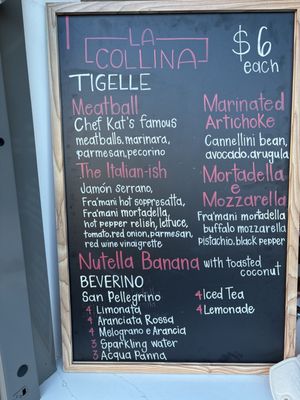 LA
COLLINA
$6
each
TIGELLE
Meatball
Chef Kat's famous
meatballs, marinara,
parmesan, pecorino
The Italian-ish
Jamón serrano,
Fra'mani hot soppresatta,
Fra'mani mortadella,
hot pepper relish, lettuce,
tomato, red onion, parmesan,
red wine vinaigrette
Marinated
Artichoke
Cannellini bean,
avocado, arugula
Mortadella
e
Mozzarella
Fra'mani mortadella
buffalo mozzarella
pistachio, black pepper
Nutella Banana with toasted
coconut
BEVERINO
San Pellegrino
4 Limonata
4 Aranciata Rossa
4 Melograno e Arancia
3 Sparkling water
3 Acqua Panna
4 Iced Tea
4 Lemonade